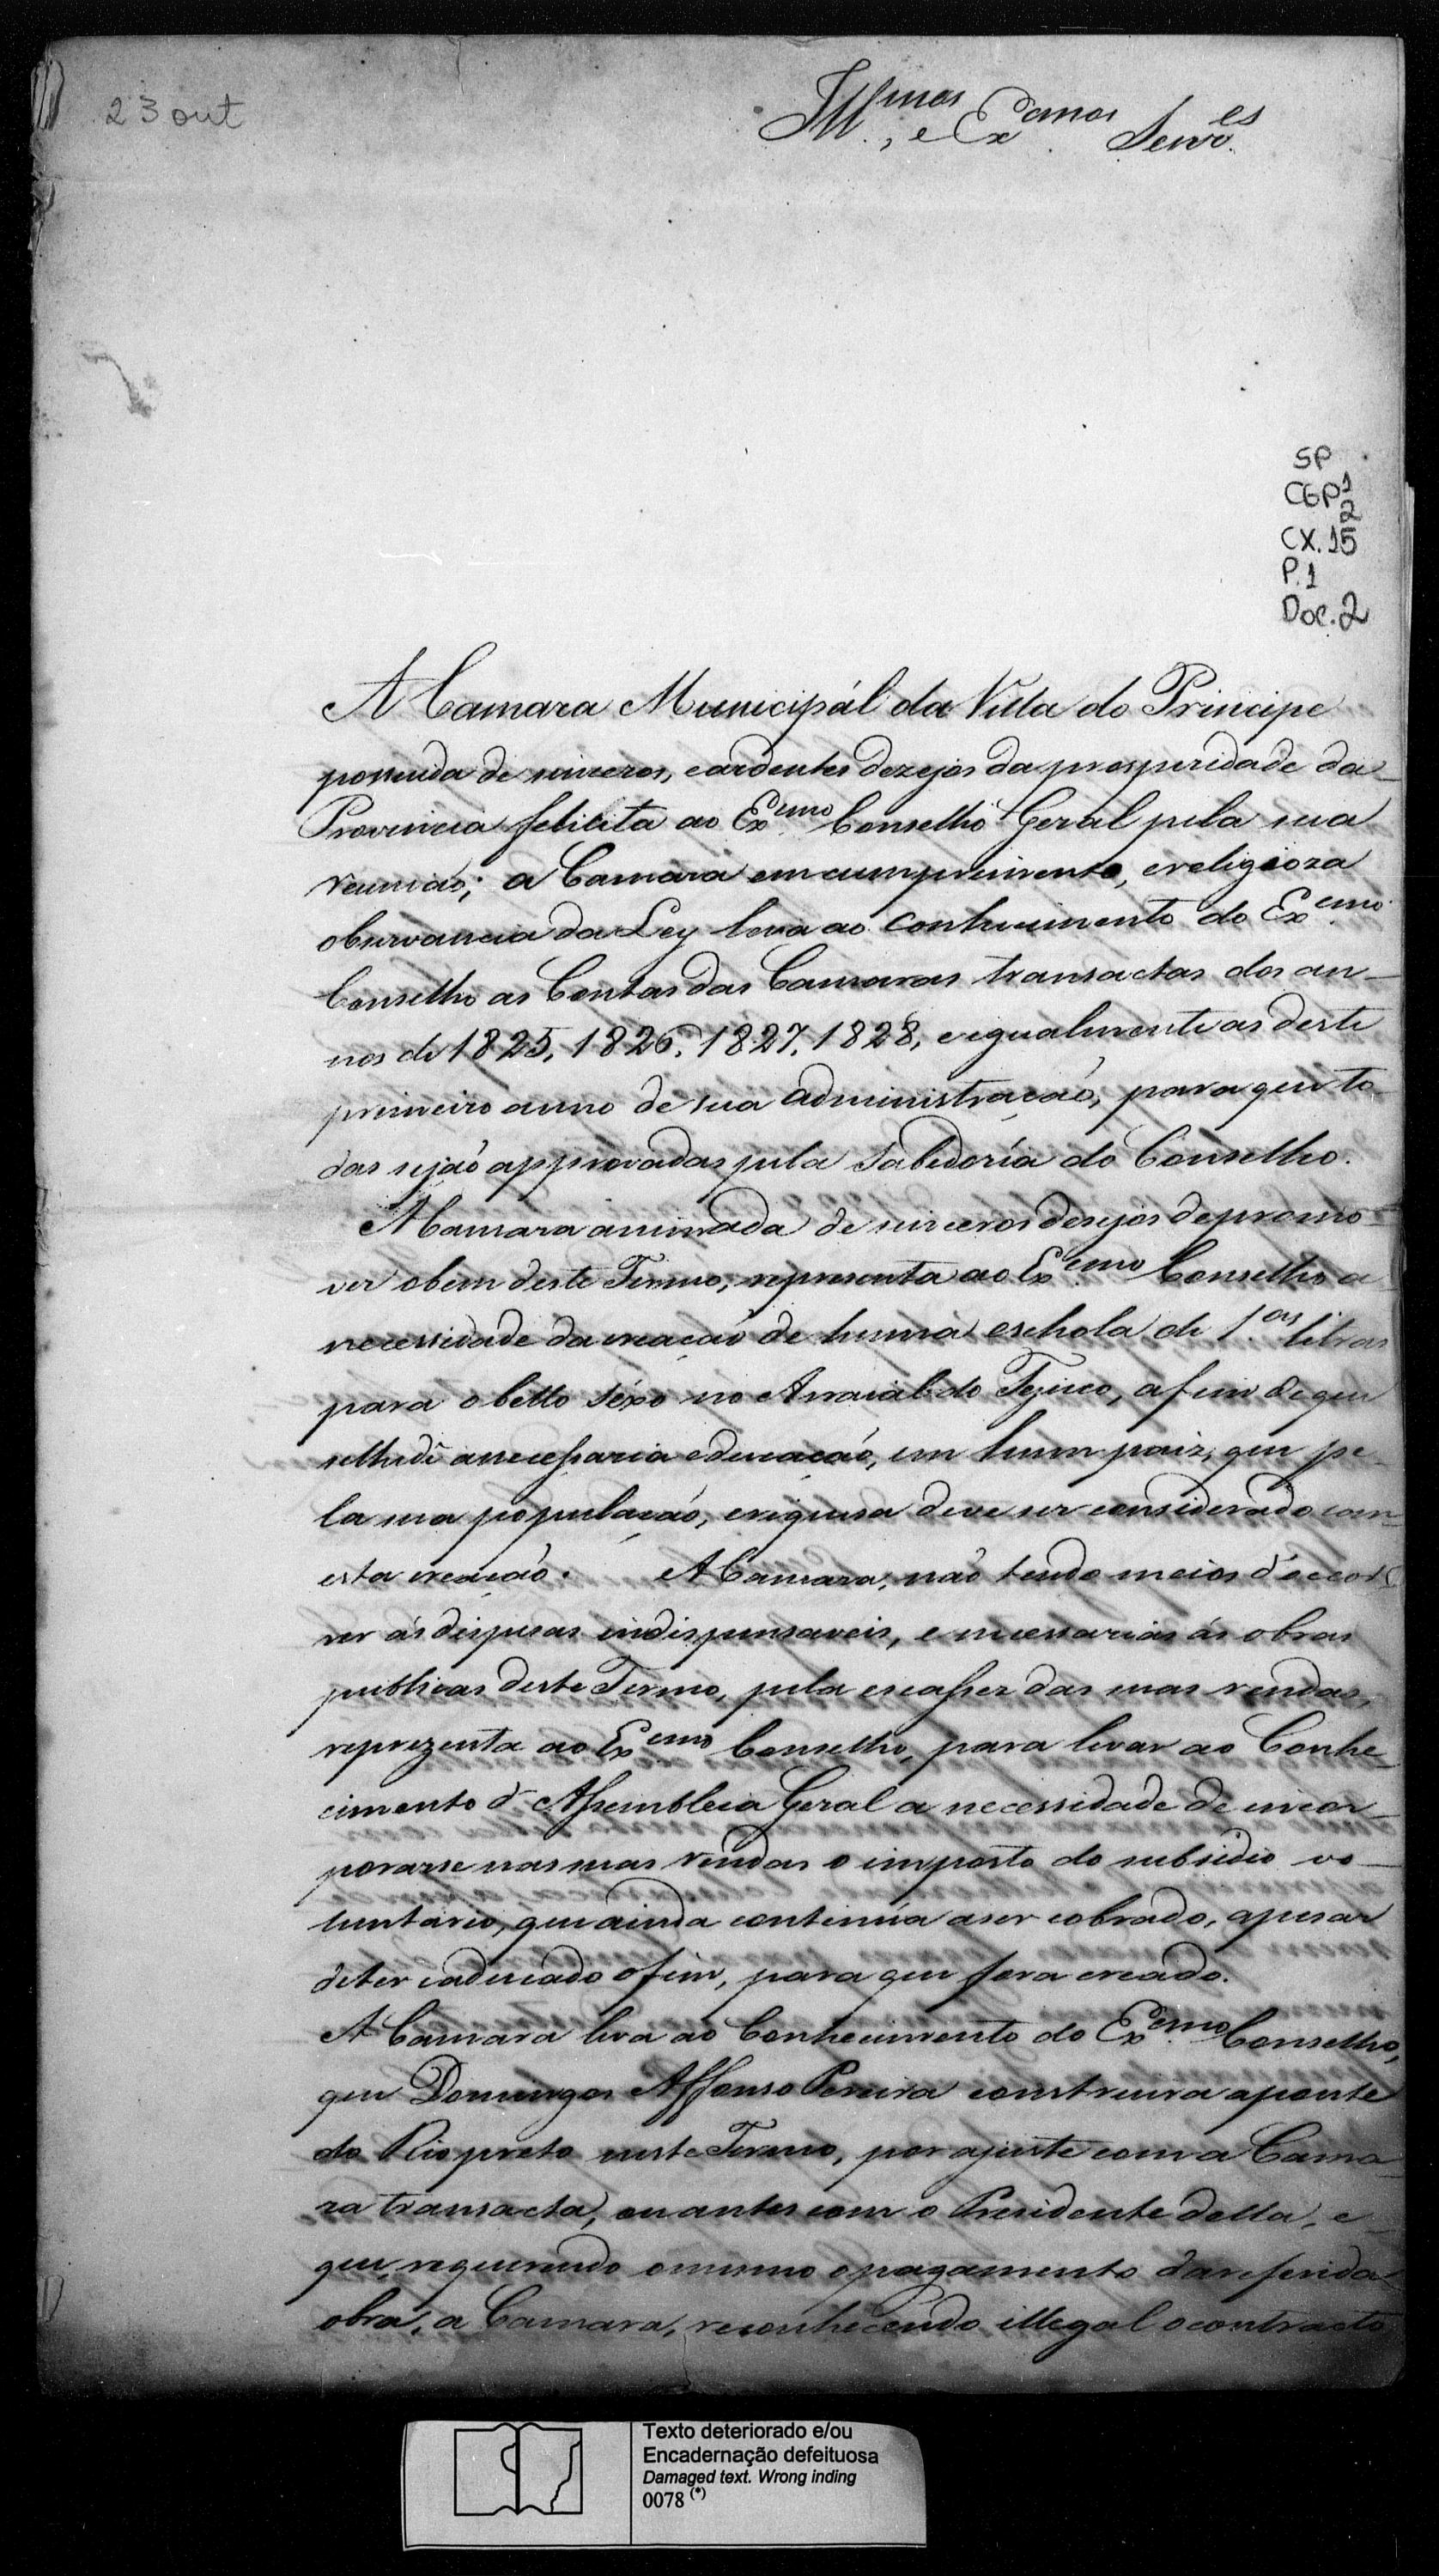 23 out
Ill.mos, e Ex.cmos Senro.es
SP
CGP1
2
CX.15
P.1
Doc.2
A Camara Municipál da Villa do Principe
possuida de sinceros, eardentes dezejos da prosperidade da
Provincia felicita ao Ex.cmo Conselho Geral pela sua
reuniaõ; a Camara emcumprimento, ereligioza
observancia da Ley leva ao conhecimento do Ex.cmo
Conselho as Contas das Camaras transactas dos an-
nos de 1825, 1826, 1827, 1828, eigualmente as deste
primeiro anno de sua administraçaõ, paraque to
das sejaõ approvadas pela Sabedoría do Conselho.
A Camara animada de sinceros desejos depromo-
ver obem deste Termo, representa ao Ex.cmo Conselho a
necessidade dacreaçaõ de huma eschola de 1.as letras
para obello séxo no Arraial do Tejuco, afim deque
selhedê anecessaria educaçaõ, em hum paiz, que pe-
la sua populaçaõ, eriquesa deve ser considerado com
esta creaçaõ. A Camara, naõ tendo meios d'occor
rer ás despesas indispensaveis, e necessarias ás obras
publicas deste Termo, pela escassez das suas rendas,
reprezenta ao Ex.cmo Conselho, para levar ao Conhe-
cimento d'Assembleia Geral a necessidade de incor-
porarse nas suas rendas o imposto do subsidio vo-
luntario, que ainda continúa aser cobrado, apesar
deter caducado ofim, para que fora creado.
A Camara leva ao Conhecimento do Ex.cmo Conselho,
que Domingos Affonso Pereira construira aponte
do Rio preto neste Termo, por ajuste com a Cama-
ra transacta, ou antes com o Presidente della, e
que, requerendo omesmo opagamento dareferida
obra, a Camara, reconhecendo illegal ocontracto
Texto deteriorado e/ou
Encadernação defeituosa
Damaged text. Wrong inding
0078 (*)